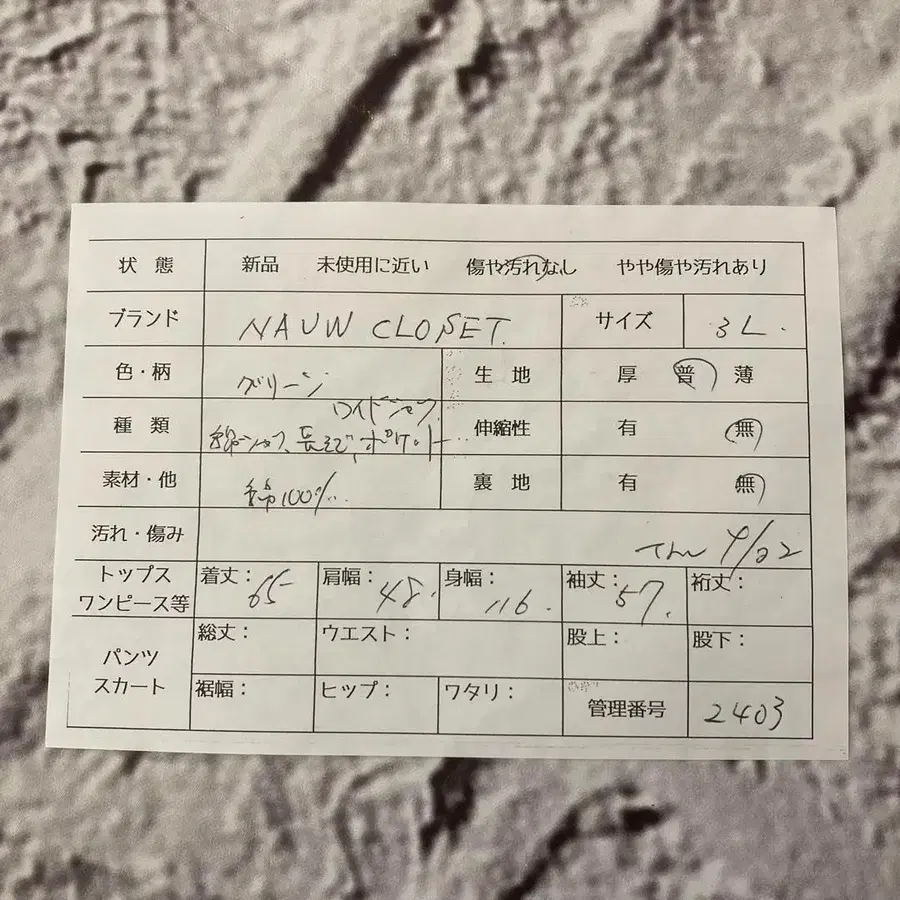 状態 新品 未使用に近い 傷や汚れなし やや傷や汚れあり
ブランド NAUW CLOSET. サイズ 3L.
色・柄 グリーン 生地 厚 普 薄
ワイドシャツ
種類 綿シャツ、長そで、ポケット 伸縮性 有 無
素材・他 綿100%. 裏地 有 無
汚れ・傷み 4/22
トップス ワンピース等 着丈: 65 肩幅: 48. 身幅: 116. 袖丈: 57. 裄丈:
パンツ スカート 総丈: ウエスト: 股上: 股下:
裾幅: ヒップ: ワタリ: 管理番号 2403